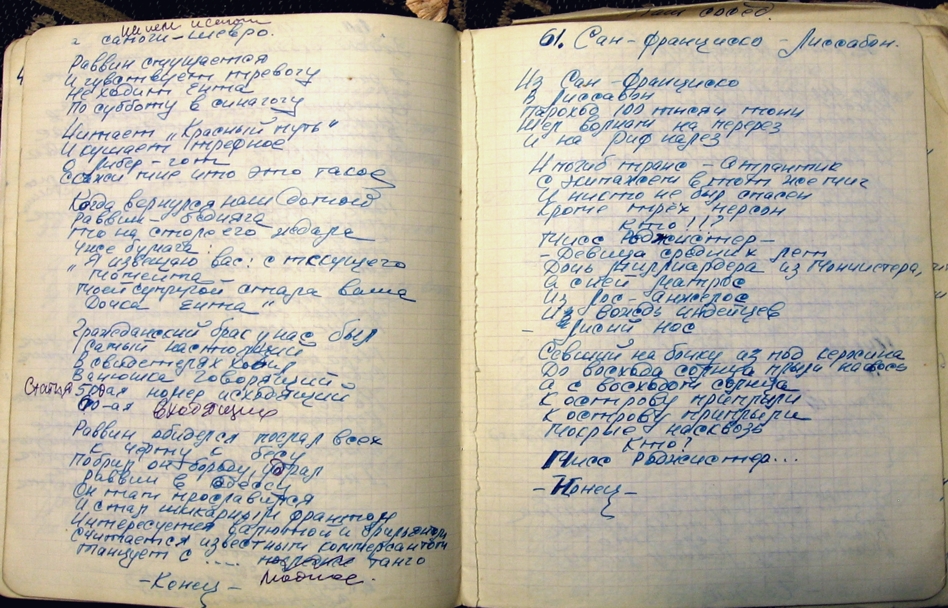 шлем и сапоги
и сапоги-шевро.
Раввин смущается
И чувствует тревогу
Не ходит Ента
По субботу в синагогу
Читает „Красный путь“
И кушает трефное
О Либер-гот
Скажи мне что это такое
Когда вернулся наш домой
Раввин-бедняга
То на столе его ждала
Уже бумага:
"Я извещаю вас: с текущего
Момента
Моей супругой стала ваша
Дочка Ента"
Гражданский брак у нас был
Самый настоящий
В свидетелях ходил
Ванюшка говорящий
Статья 5рая номер исходящий
ая входящий
Раввин обиделся послал всех
К чёрту к бесу
Побрил он бороду, удрал
Раввин в Одессу
Он там прославился
И стал шикарным франтом
Интересуется валютной и брильянтом
Считается известным коммерсантом
Танцует с .... танго
Модное.
-Конец-
61. Сан-Франциско-Лиссабон.
Из Сан-Франциско
В Лиссабон
Пароход 100 тысяч тонн
Шёл волнам на перерез
И на риф налез
И погиб транс-Атлантик
С экипажем в тот же миг
И никто не был спасен
Кроме трёх персон
Кто!!?
Мисс Роджистер-
-Девица средних лет
Дочь миллиардера из Манчистера,
А с ней матрос
Из Лос-Анжелос
Из вождь индейцев
- Лисий нос
Севший на бочку из под керосина
До восхода солнца плыли на ось
А с восходом солнца
К острову приплыли
К острову приплыли
Мокрые насквозь
Кто?
Мисс Роджистер...
-Конец-